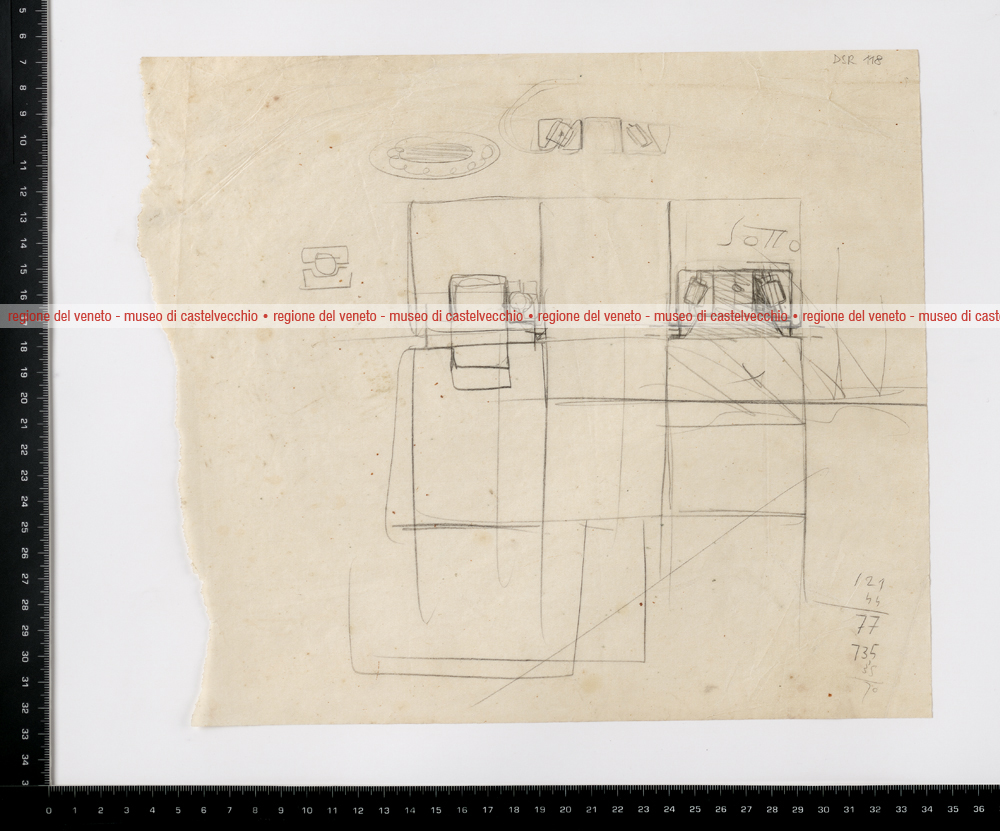 DSR 118
Sotto
regione del veneto - museo di castelvecchio • regione del veneto - museo di castelvecchio • regione del veneto - museo di castelvecchio • regione del veneto - museo di cast
121
44
77
735
35
70
5
6
7
8
9
10
11
12
13
14
15
16
18
19
20
21
22
23
24
25
26
27
28
29
30
31
32
33
34
0 1 2 3 4 5 6 7 8 9 10 11 12 13 14 15 16 17 18 19 20 21 22 23 24 25 26 27 28 29 30 31 32 33 34 35 36